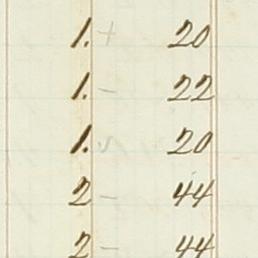 1. + 20
1. - 22
1. 20
2 - 44
2 - 44